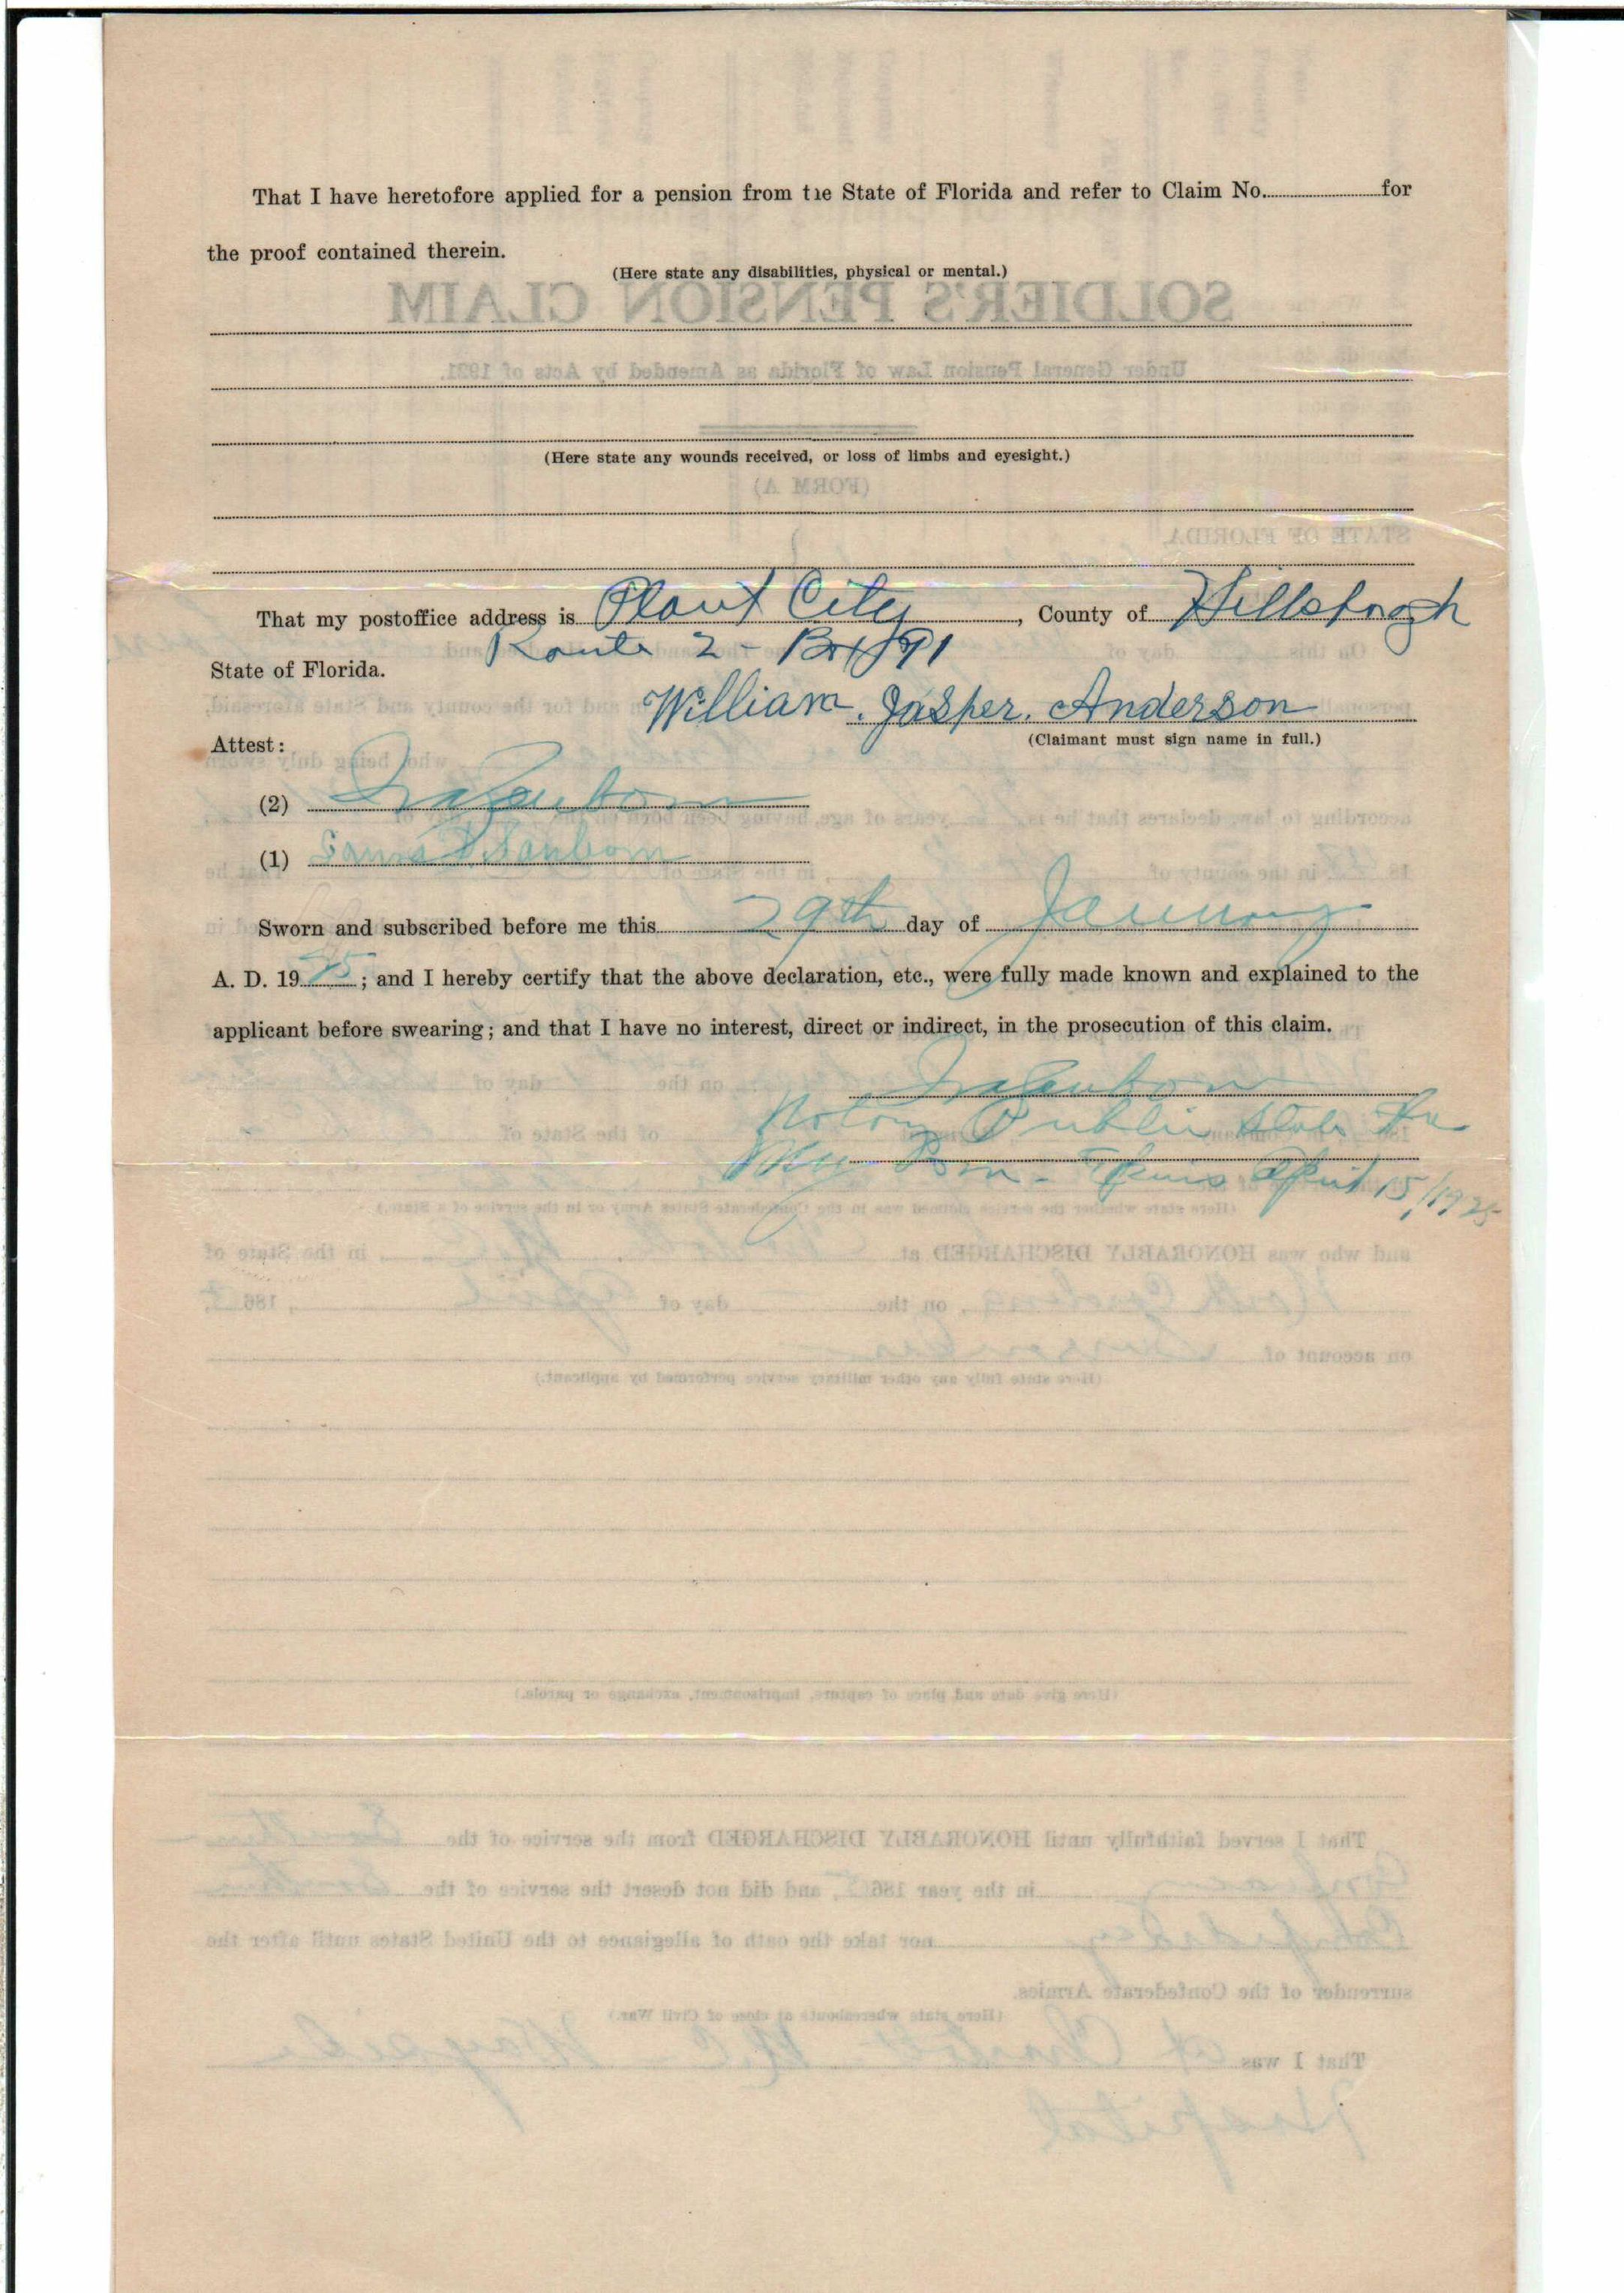 That I have heretofore applied for a pension from the State of Florida and refer to Claim No. for
the proof contained therein.
(Here state any disabilities, physical or mental.)
(Here state any wounds received, or loss of limbs and eyesight.)
That my postoffice address is Plant City, County of Hillsborogh
Route 2 - Box 191
State of Florida.
William. Jasper. Anderson
Attest:
(Claimant must sign name in full.)
(2)
(1)
Sworn and subscribed before me this 29th day of January
A. D. 1925; and I hereby certify that the above declaration, etc., were fully made known and explained to the
applicant before swearing; and that I have no interest, direct or indirect, in the prosecution of this claim.
Notary Public State Fla
My Com - Expires April 15/1925